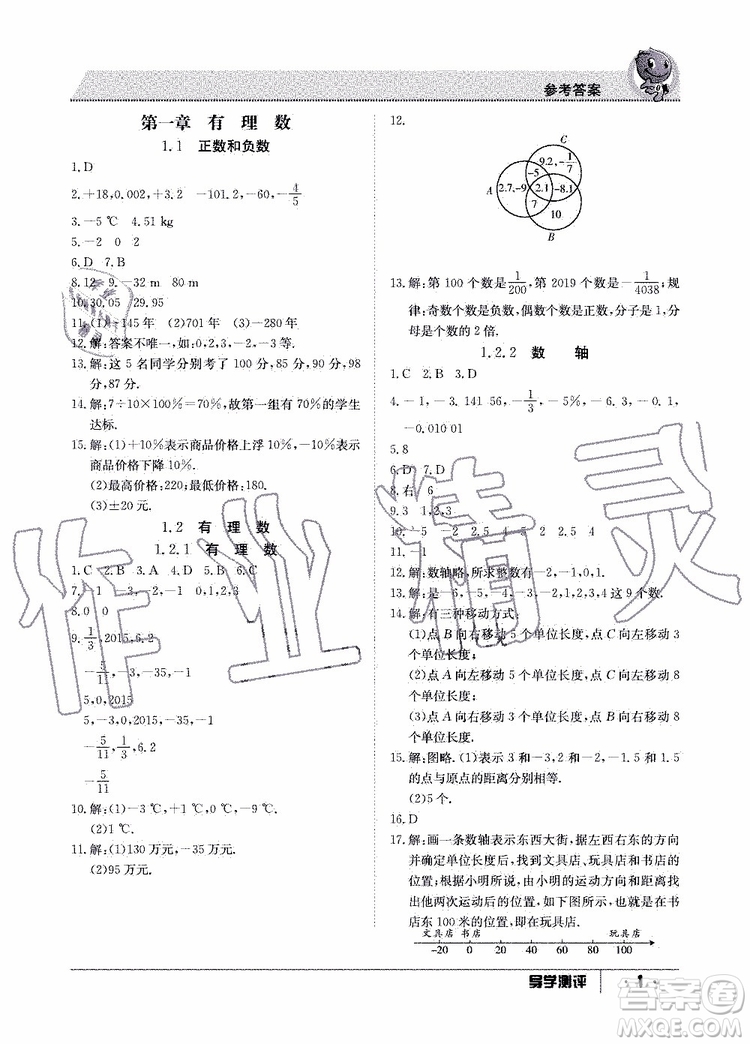 参考答案
第一章 有理数
1.1 正数和负数
1.D
2.+18,0.002,+3.2 -101.2,-60,-4/5
3.-5 ℃ 4.51 kg
5.-2 0 2
6.D 7.B
8.12 9.-32 m 80 m
10.30.05 29.95
11.(1)-145年 (2)701年 (3)-280年
12.解:答案不唯一,如:0,2,3,-2,-3等.
13.解:这5名同学分别考了100分,85分,90分,98
分,87分.
14.解:7÷10×100%=70%,故第一组有70%的学生
达标.
15.解:(1)+10%表示商品价格上浮10%,-10%表示
商品价格下降10%.
(2)最高价格:220;最低价格:180.
(3)±20元.
1.2 有理数
1.2.1 有理数
1.C 2.B 3.A 4.D 5.B 6.C
7.1 -1 0,1,2,3
8.0 0
9.1/3,2015,6.2
-5/11,-3,-35,-1
5,0,2015
5,-3,0,2015,-35,-1
-5/11,1/3,6.2
-5/11
10.解:(1)-3℃,+1℃,0℃,-2℃,-9℃.
(2)1℃.
11.解:(1)130万元,-35万元.
(2)95万元.
12.
C
9.2,-1/7
-5
A
2.7,-9
2.1
-8.1
7
10
B
13.解:第100个数是1/200,第2019个数是-1/4038;规
律:奇数个数是负数,偶数个数是正数,分子是1,分
母是个数的2倍.
1.2.2 数轴
1.C 2.B 3.D
4.-1,-3.14156,-1/3,-5%,-6.3,-1/4,
-0.01001
5.8
6.D 7.D
8.右 6
9.3 1,2,3
10.-5 -2 2.5 4 5 2.5 2 4
11.-1
12.解:数轴略,所求整数有-2,-1,0,1,2,3.
13.解:是-6,-5,-4,-3,-2,1,2,3,4这9个数.
14.解:有三种移动方式.
(1)点B向右移动5个单位长度,点C向左移动3
个单位长度;
(2)点A向左移动5个单位长度,点C向左移动8
个单位长度;
(3)点A向右移动3个单位长度,点B向右移动8
个单位长度.
15.解:图略.(1)表示3和-3,2和-2,5和-5
的点与原点的距离分别相等.
(2)5个.
16.D
17.解:画一条数轴表示东西大街,据左右东的方向
并确定单位长度后,找到文具店、玩具店和书店的
位置;根据小明所说,由小明的运动方向和距离找
出他两次运动后的位置,可知小明此时的位置在书
店东100米的位置,即在玩具店.
文具店 书店 玩具店
-20 0 20 40 60 80 100
导学测评
1
作业精灵
答案圈
MXQE.COM